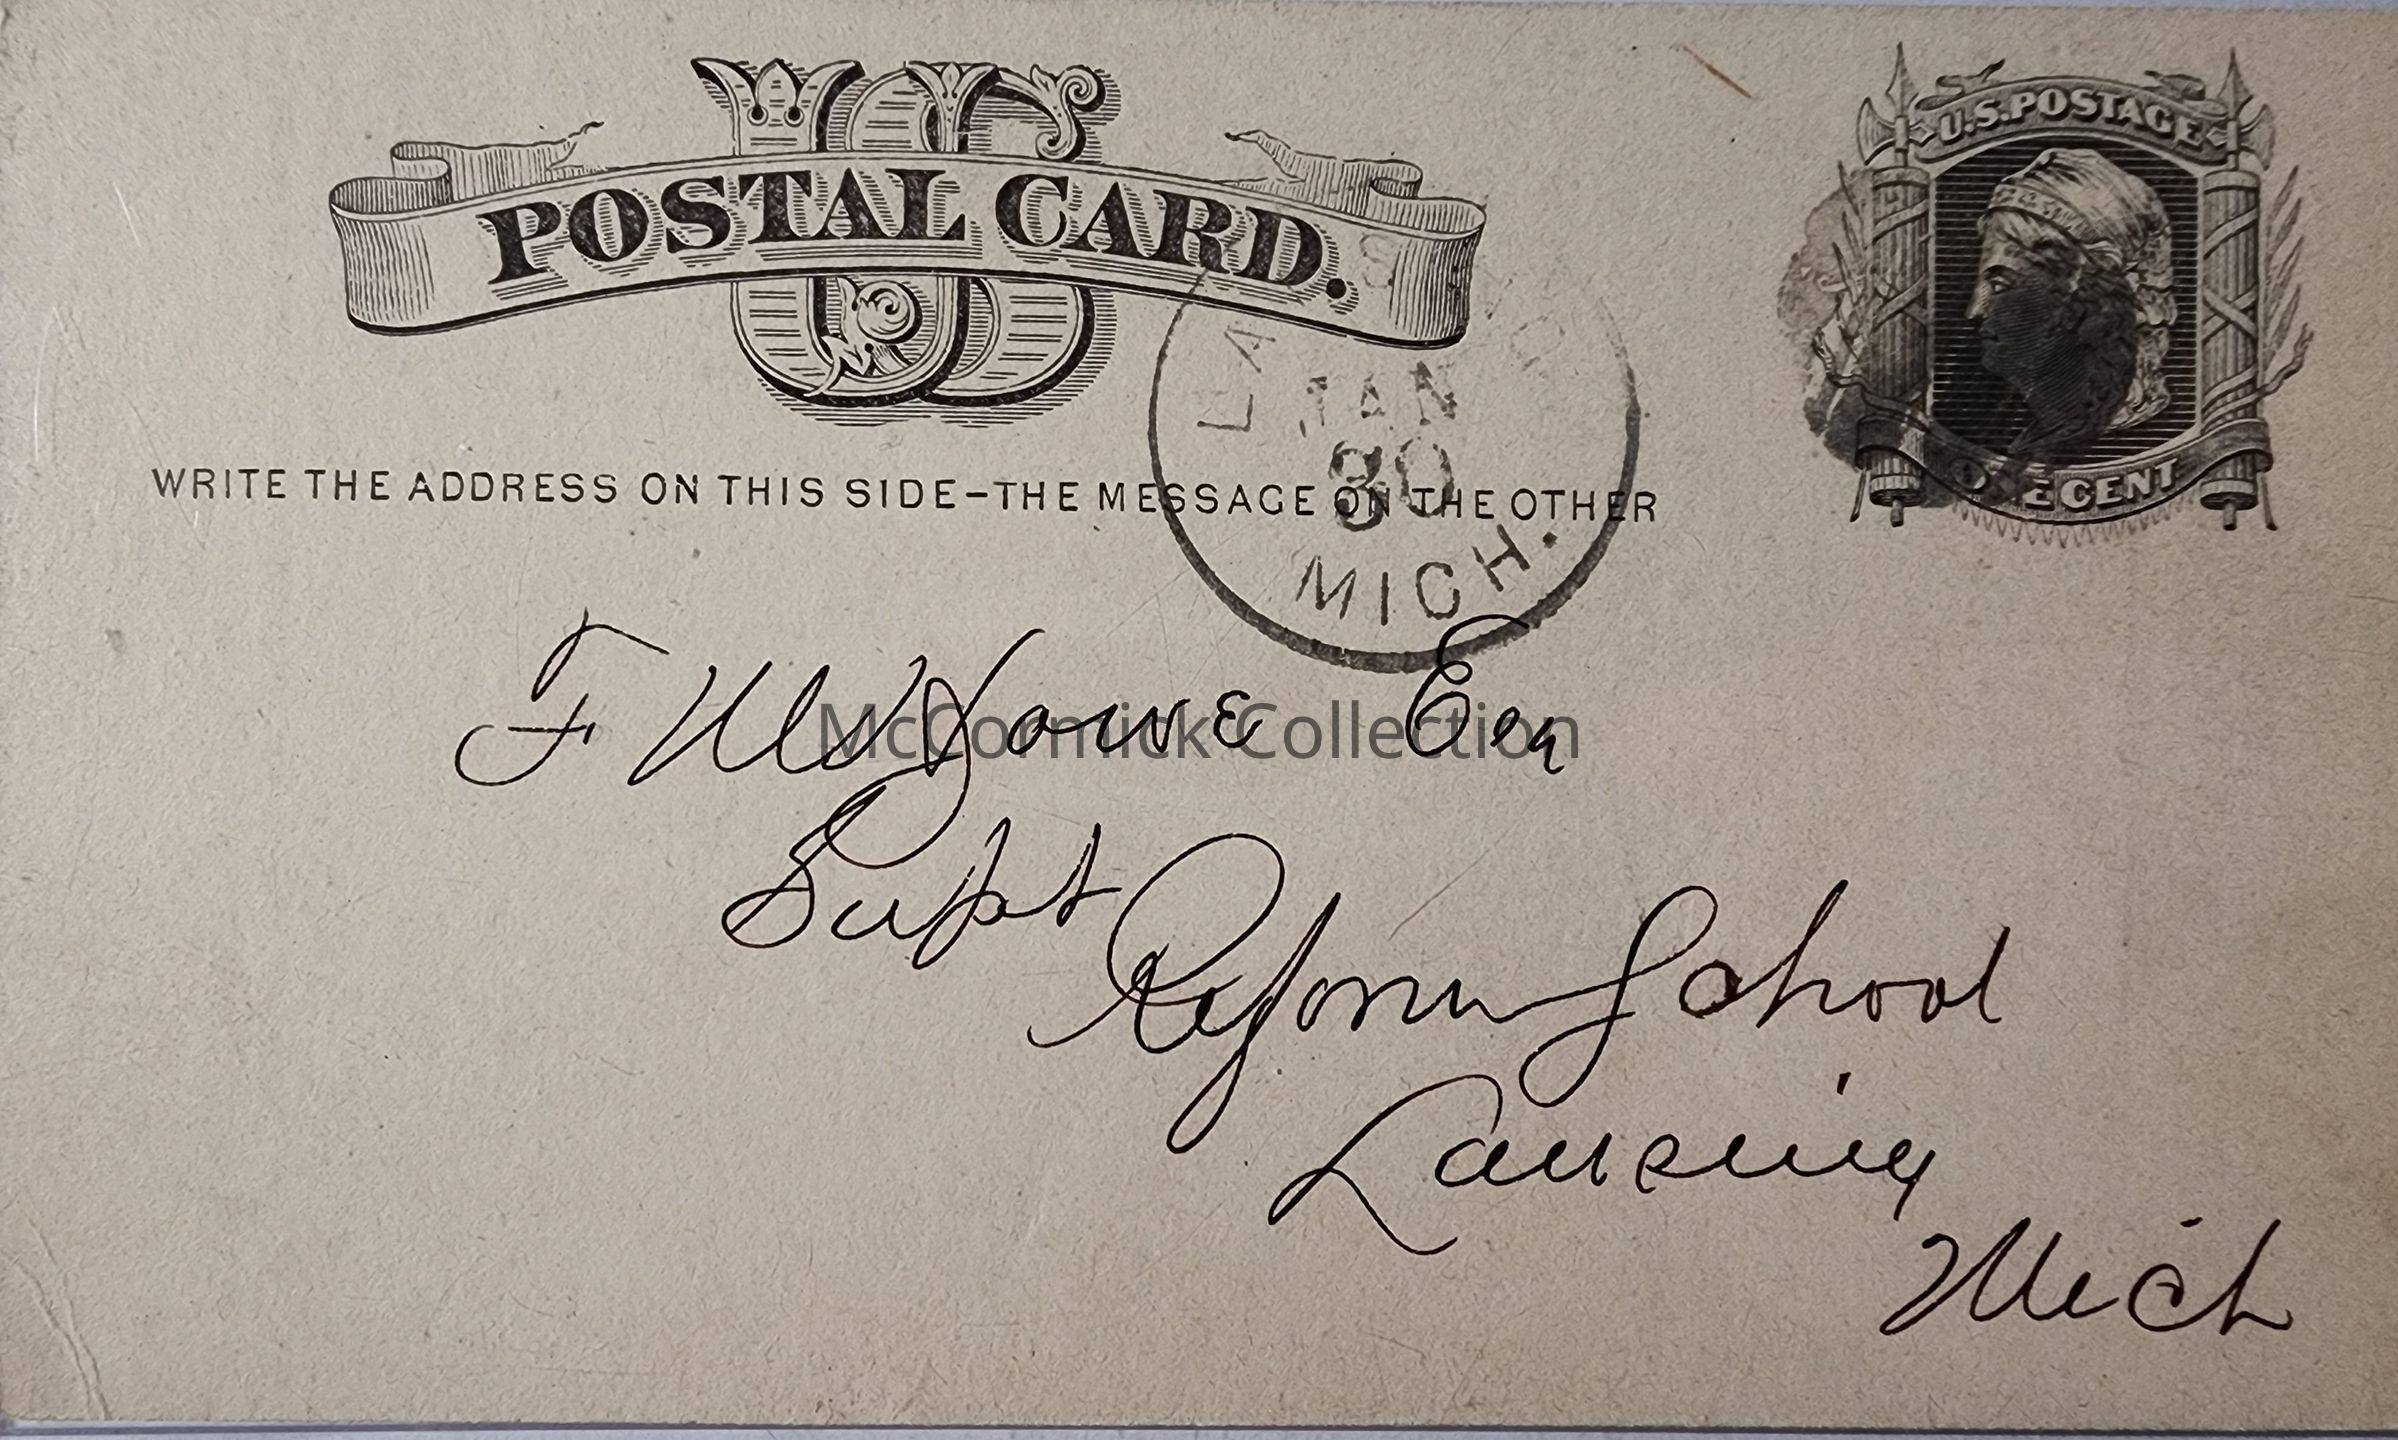 US
POSTAL CARD.
U.S. POSTAGE
ONE CENT
WRITE THE ADDRESS ON THIS SIDE–THE MESSAGE ON THE OTHER
LA
JAN
30
MICH.
F M Howe Esq
Supt
Reform School
Lansing
Mich
McCormick Collection